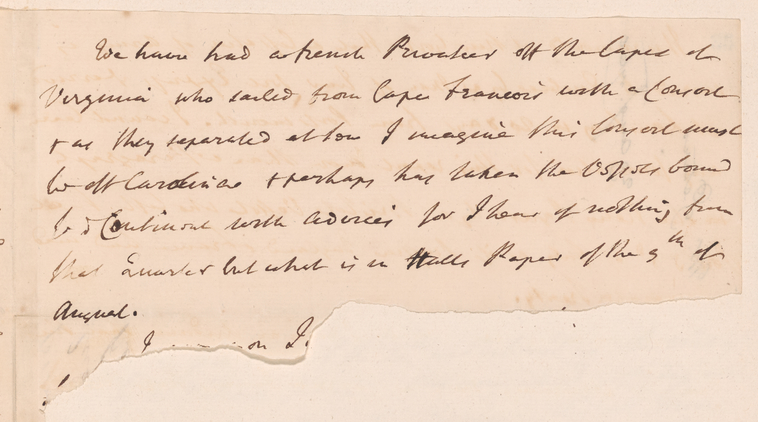 We have had a french Privateer off the Capes of
Virginia who sailed from Cape Francois with a Consort
& as they separated at Sea I imagine this Consort must
be off Carolina & perhaps has taken the Vessels bound
to Continent with advices for I hear of nothing from
that Quarter but what is in Halls Paper of the 9th of
August.
on